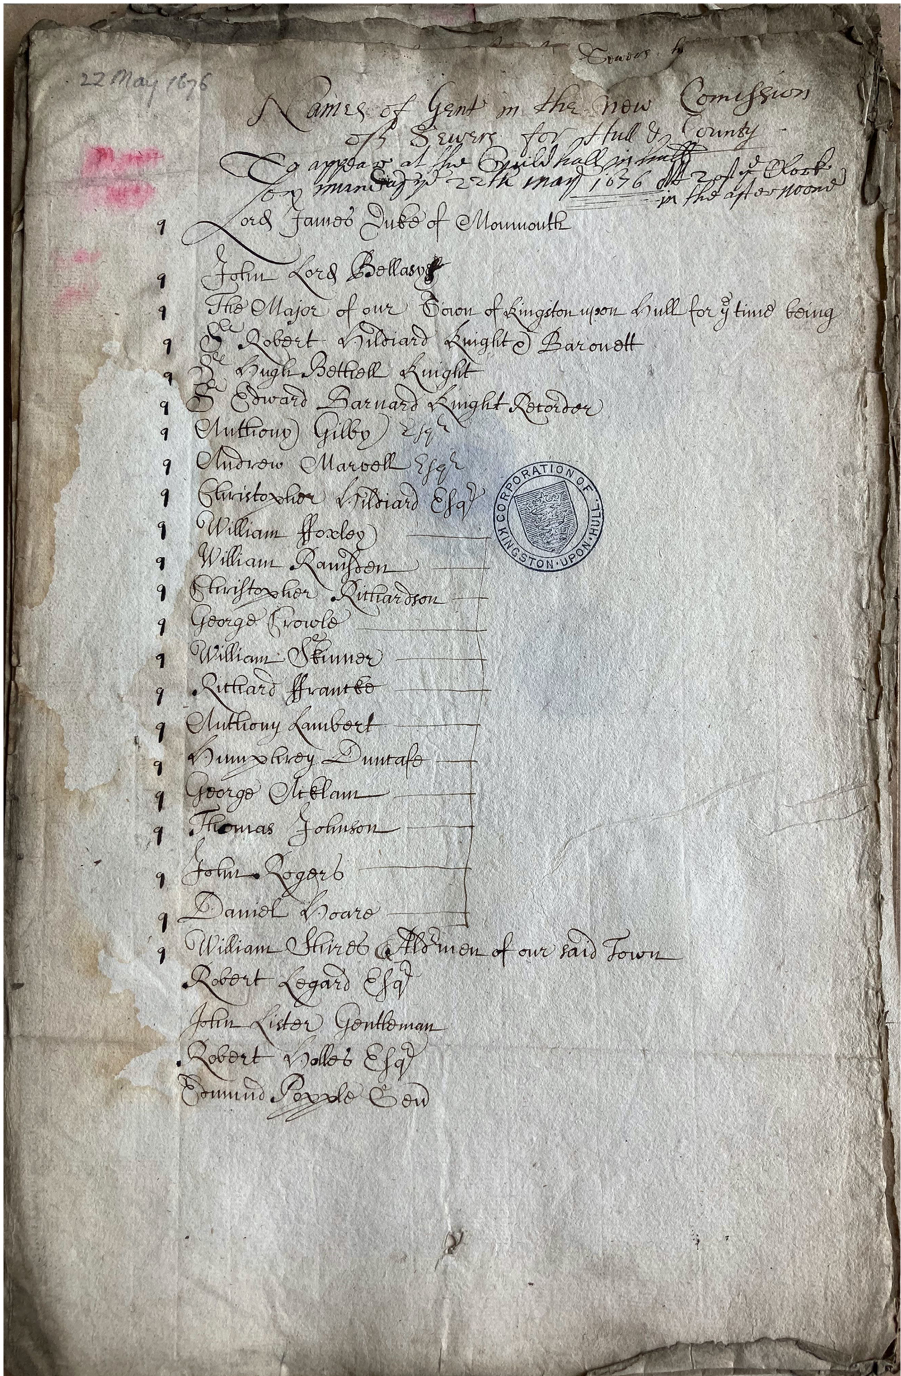 22 May 1676
Names of Gent in the new Comission
of Sewers for Hull & County
To appear at the Guildhall in Hull
upon munday ye 22th may 1676 att 2 of ye Clock
in the afternoone
q Lord James Duke of Monmouth
q John Lord Bellasys
q The Major of our Town of Kingston upon Hull for ye time being
q Sr Robert Hildiard Knight & Baronett
q Sr Hugh Bethell Knight
q Sr Edward Barnard Knight Recorder
q Anthony Gilby Esqr
q Andrew Marvell Esqr
q Christopher Hildiard Esqr
q William ffoxley
q William Ramsden
q Christopher Richardson
q George Crowle
q William Skinner
q Richard ffrancke
q Anthony Lambert
q Humphrey Duncalfe
q George Acklam
q Thomas Johnson
q John Rogers
q Daniel Hoare
q William Shires Aldrmen of our said Town
Robert Legard Esqr
John Lister Gentleman
Robert Holles Esqr
Edmund Popple Gen
CORPORATION OF HULL
KINGSTON·UPON·HULL